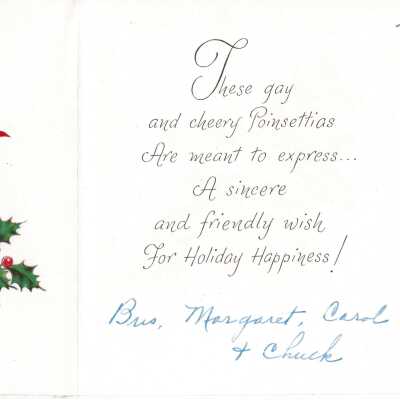 These gay
and cheery Poinsettias
Are meant to express...
A sincere
and friendly wish
For Holiday Happiness!
Bus, Margaret, Carol
+ Chuck